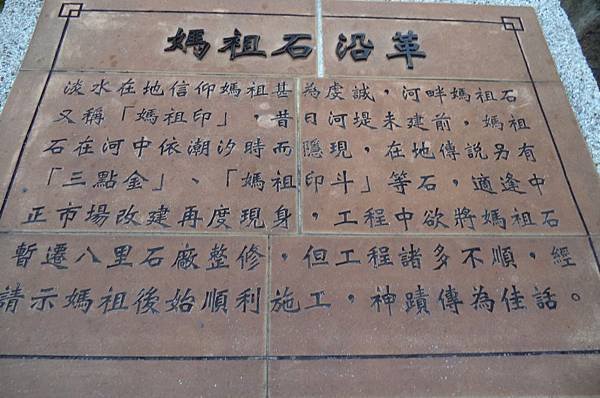 媽祖石沿革
淡水在地信仰媽祖甚為虔誠，河畔媽祖石
又稱「媽祖印」，昔日河堤未建前，媽祖
石在河中依潮汐時而隱現，在地傳說另有
「三點金」、「媽祖印斗」等石，適逢中
正市場改建再度現身，工程中欲將媽祖石
暫遷八里石廠整修，但工程諸多不順，經
請示媽祖後始順利施工，神蹟傳為佳話。